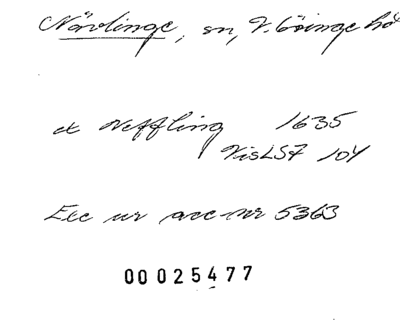 Nävlinge, sn, V. Göinge hd
et Neffling 1635
VisLSF 104
Exc ur acc-nr 5363
00025477